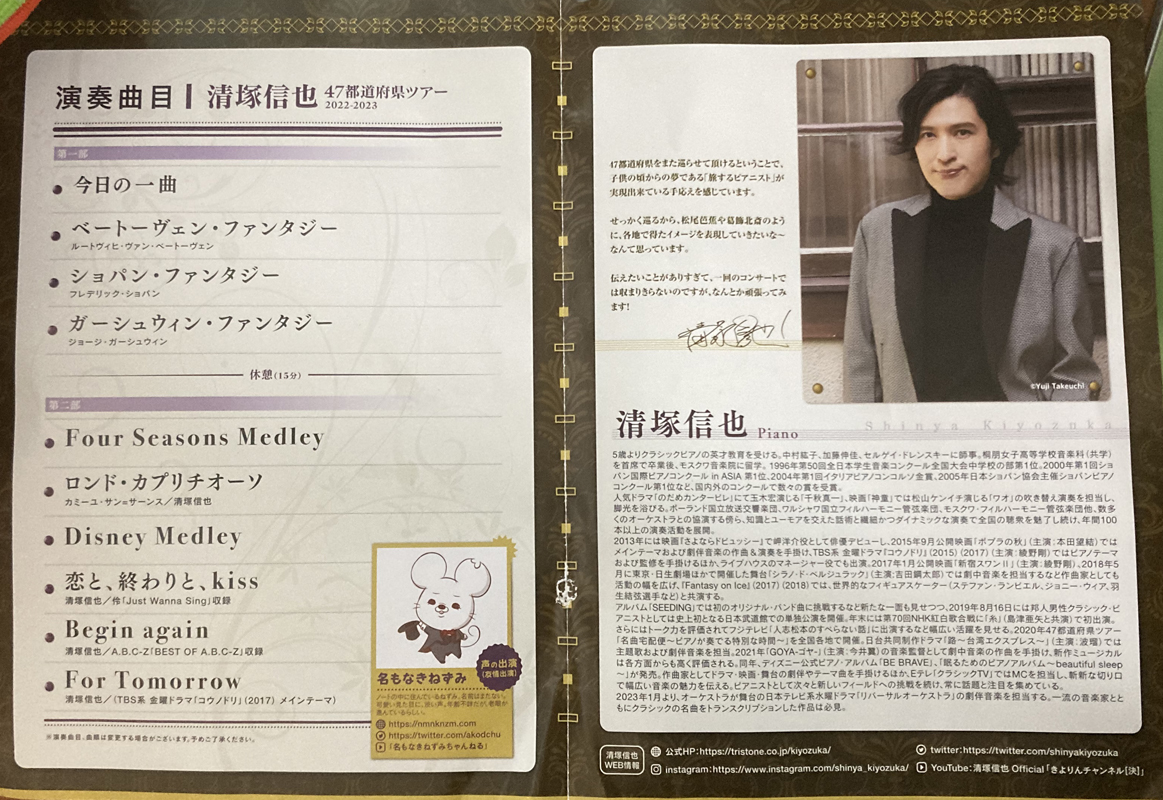 演奏曲目 清塚信也 47都道府県ツアー
2022-2023
第一部
今日の一曲
ベートーヴェン・ファンタジー
ルートヴィヒ・ヴァン・ベートーヴェン
ショパン・ファンタジー
フレデリック・ショパン
ガーシュウィン・ファンタジー
ジョージ・ガーシュウィン
休憩(15分)
第二部
Four Seasons Medley
ロンド・カプリチオーソ
カミーユ・サン=サーンス／清塚信也
Disney Medley
恋と、終わりと、kiss
清塚信也／伶「Just Wanna Sing」収録
Begin again
清塚信也／A.B.C-Z「BEST OF A.B.C-Z」収録
For Tomorrow
清塚信也／(TBS系 金曜ドラマ「コウノドリ」(2017) メインテーマ)
※演奏曲目、曲順は変更する場合がございます。予めご了承ください。
声の出演
(哀愁出演)
名もなきねずみ
ノートの中に住んでいるねずみ。名前はまだない。
https://nmnknzm.com
https://twitter.com/akodchu
「名もなきねずみちゃんねる」
47都道府県をまた巡らせて頂けるということで、
子供の頃からの夢である「旅するピアニスト」が
実現出来ている手応えを感じています。
せっかく巡るから、松尾芭蕉や葛飾北斎のよう
に、各地で得たイメージを表現していきたいな～
なんて思っています。
伝えたいことがありすぎて、一回のコンサートで
は収まりきらないのですが、なんとか頑張ってみ
ます!
©Yuji Takeuchi
清塚信也 Piano
Shinya Kiyozuka
5歳よりクラシックピアノの英才教育を受ける。中村紘子、加藤伸佳、セルゲイ・ドレンスキーに師事。桐朋女子高等学校音楽科(共学)
を首席で卒業後、モスクワ音楽院に留学。1996年第50回全日本学生音楽コンクール全国大会中学校の部第1位。2000年第1回ショ
パン国際ピアノコンクール in ASIA 第1位、2004年第1回イタリアピアノコンコルソ金賞、2005年日本ショパン協会主催ショパンピアノ
コンクール第1位など、国内外のコンクールで数々の賞を受賞。
人気ドラマ「のだめカンタービレ」にて玉木宏演じる「千秋真一」、映画「神童」では松山ケンイチ演じる「ワオ」の吹き替え演奏を担当し、
脚光を浴びる。ポーランド国立放送交響楽団、ワルシャワ国立フィルハーモニー管弦楽団、モスクワ・フィルハーモニー管弦楽団他、数多
くのオーケストラとの協演する傍ら、知識とユーモアを交えた話術と繊細かつダイナミックな演奏で全国の聴衆を魅了し続け、年間100
本以上の演奏活動を展開。
2013年には映画「さよならドビュッシー」で岬洋介役として俳優デビューし、2015年9月公開映画「ポプラの秋」(主演:本田望結)では
メインテーマおよび劇伴音楽の作曲&演奏を手掛け、TBS系 金曜ドラマ「コウノドリ」(2015) (2017) (主演:綾野剛)ではピアノテーマ
および監修を手掛けるほか、ライブハウスのマネージャー役でも出演。2017年1月公開映画「新宿スワンⅡ」(主演:綾野剛)、2018年5
月に東京・日生劇場ほかで開催した舞台「シラノ・ド・ベルジュラック」(主演:吉田鋼太郎)では劇中音楽を担当するなど作曲家としても
活動の幅を広げ、「Fantasy on Ice」(2017) (2018)では、世界的なフィギュアスケーター(ステファン・ランビエル、ジョニー・ウィア、羽
生結弦選手など)と共演する。
アルバム「SEEDING」では初のオリジナル・バンド曲に挑戦するなど新たな一面も見せつつ、2019年8月16日には邦人男性クラシック・ピ
アニストとしては史上初となる日本武道館での単独公演を開催。年末には第70回NHK紅白歌合戦に「糸」(島津亜矢と共演)で初出演。
さらにはトーク力を評価されてフジテレビ「人志松本のすべらない話」に出演するなど幅広い活躍を見せる。2020年47都道府県ツアー
「名曲宅配便～ピアノが奏でる特別な時間～」を全国各地で開催。日台共同制作ドラマ「路～台湾エクスプレス～」(主演:波瑠)では
主題歌および劇伴音楽を担当。2021年「GOYA-ゴヤ-」(主演:今井翼)の音楽監督として劇中音楽の作曲を手掛け、新作ミュージカル
は各方面からも高く評価される。同年、ディズニー公式ピアノ・アルバム「BE BRAVE」、「眠るためのピアノアルバム～beautiful sleep
～」が発売。作曲家としてドラマ・映画・舞台の劇伴やテーマ曲を手掛けるほか、Eテレ「クラシックTV」ではMCを担当し、斬新な切り口
で幅広い音楽の魅力を伝える。ピアニストとして次々と新しいフィールドへの挑戦を続け、常に話題と注目を集めている。
2023年1月より、オーケストラが舞台の日本テレビ系水曜ドラマ「リバーサルオーケストラ」の劇伴音楽を担当する。一流の音楽家とと
もにクラシックの名曲をトランスクリプションした作品は必見。
清塚信也
WEB情報
公式HP:https://tristone.co.jp/kiyozuka/
twitter:https://twitter.com/shinyakiyozuka
instagram:https://www.instagram.com/shinya_kiyozuka/
YouTube:清塚信也 Official「きよりんチャンネル[決]」